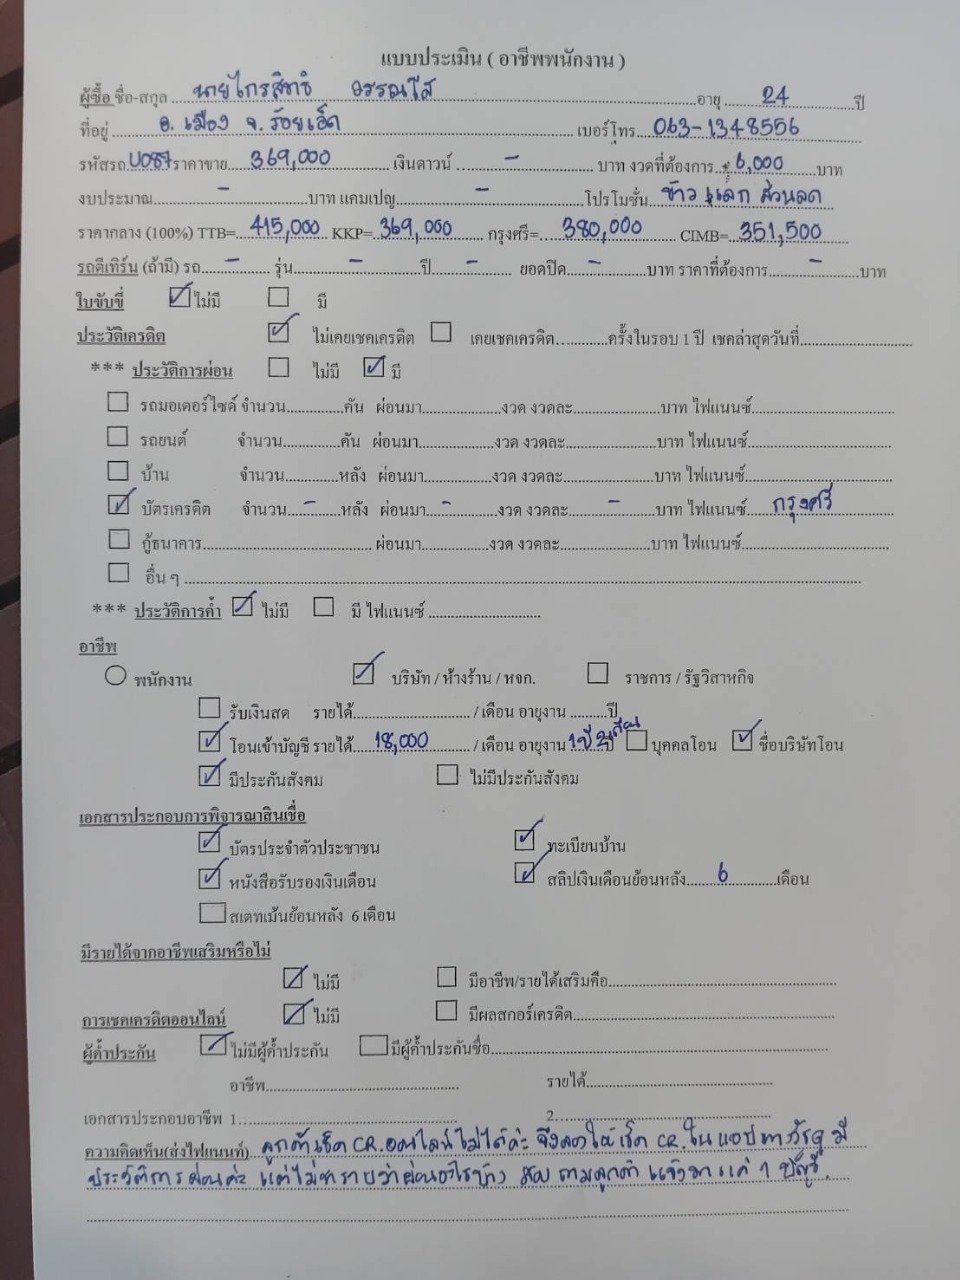 แบบประเมิน ( อาชีพพนักงาน )
ผู้ซื้อ ชื่อ-สกุล นายไกรสิทธิ์ วรรณโส อายุ 24 ปี
ที่อยู่ อ. เมือง จ. ร้อยเอ็ด เบอร์โทร 063-1348556
รหัสรถ U087 ราคาขาย 369,000 เงินดาวน์ - บาท งวดที่ต้องการ 6,000 บาท
งบประมาณ - บาท แคมเปญ - โปรโมชั่น ข้าว แลก ส่วนลด
ราคากลาง (100%) TTB= 415,000 KKP= 369,000 กรุงศรี= 380,000 CIMB= 351,500
รถตีเทิร์น (ถ้ามี) รถ - รุ่น - ปี - ยอดปิด - บาท ราคาที่ต้องการ - บาท
ใบขับขี่ ไม่มี มี
ประวัติเครดิต ไม่เคยเชคเครดิต เคยเชคเครดิต ครั้งในรอบ 1 ปี เชคล่าสุดวันที่
*** ประวัติการผ่อน ไม่มี มี
รถมอเตอร์ไซด์ จำนวน คัน ผ่อนมา งวด งวดละ บาท ไฟแนนซ์
รถยนต์ จำนวน คัน ผ่อนมา งวด งวดละ บาท ไฟแนนซ์
บ้าน จำนวน หลัง ผ่อนมา งวด งวดละ บาท ไฟแนนซ์
บัตรเครดิต จำนวน - หลัง ผ่อนมา - งวด งวดละ - บาท ไฟแนนซ์ กรุงศรี
กู้ธนาคาร ผ่อนมา งวด งวดละ บาท ไฟแนนซ์
อื่น ๆ
*** ประวัติการค้ำ ไม่มี มี ไฟแนนซ์
อาชีพ
พนักงาน บริษัท / ห้างร้าน / หจก. ราชการ / รัฐวิสาหกิจ
รับเงินสด รายได้ / เดือน อายุงาน ปี
โอนเข้าบัญชี รายได้ 18,000 / เดือน อายุงาน 1 ปี 2 เดือน ปี บุคคลโอน ชื่อบริษัทโอน
มีประกันสังคม ไม่มีประกันสังคม
เอกสารประกอบการพิจารณาสินเชื่อ
บัตรประจำตัวประชาชน ทะเบียนบ้าน
หนังสือรับรองเงินเดือน สลิปเงินเดือนย้อนหลัง 6 เดือน
สเตทเม้นย้อนหลัง 6 เดือน
มีรายได้จากอาชีพเสริมหรือไม่
ไม่มี มีอาชีพ/รายได้เสริมคือ
การเชคเครดิตออนไลน์ ไม่มี มีผลสกอร์เครดิต
ผู้ค้ำประกัน ไม่มีผู้ค้ำประกัน มีผู้ค้ำประกันชื่อ
อาชีพ รายได้
เอกสารประกอบอาชีพ 1. 2.
ความคิดเห็น(ส่งไฟแนนท์) ลูกค้าเช็ค CR.ออนไลน์ไม่ได้ค่ะ จึงลองให้เช็ค CR.ในแอปทางรัฐ มี
ประวัติการผ่อนค่ะ แต่ไม่ทราบว่าผ่อนอะไรบ้าง สอบถามลูกค้า แจ้งมาแค่ 1 บัญชี.